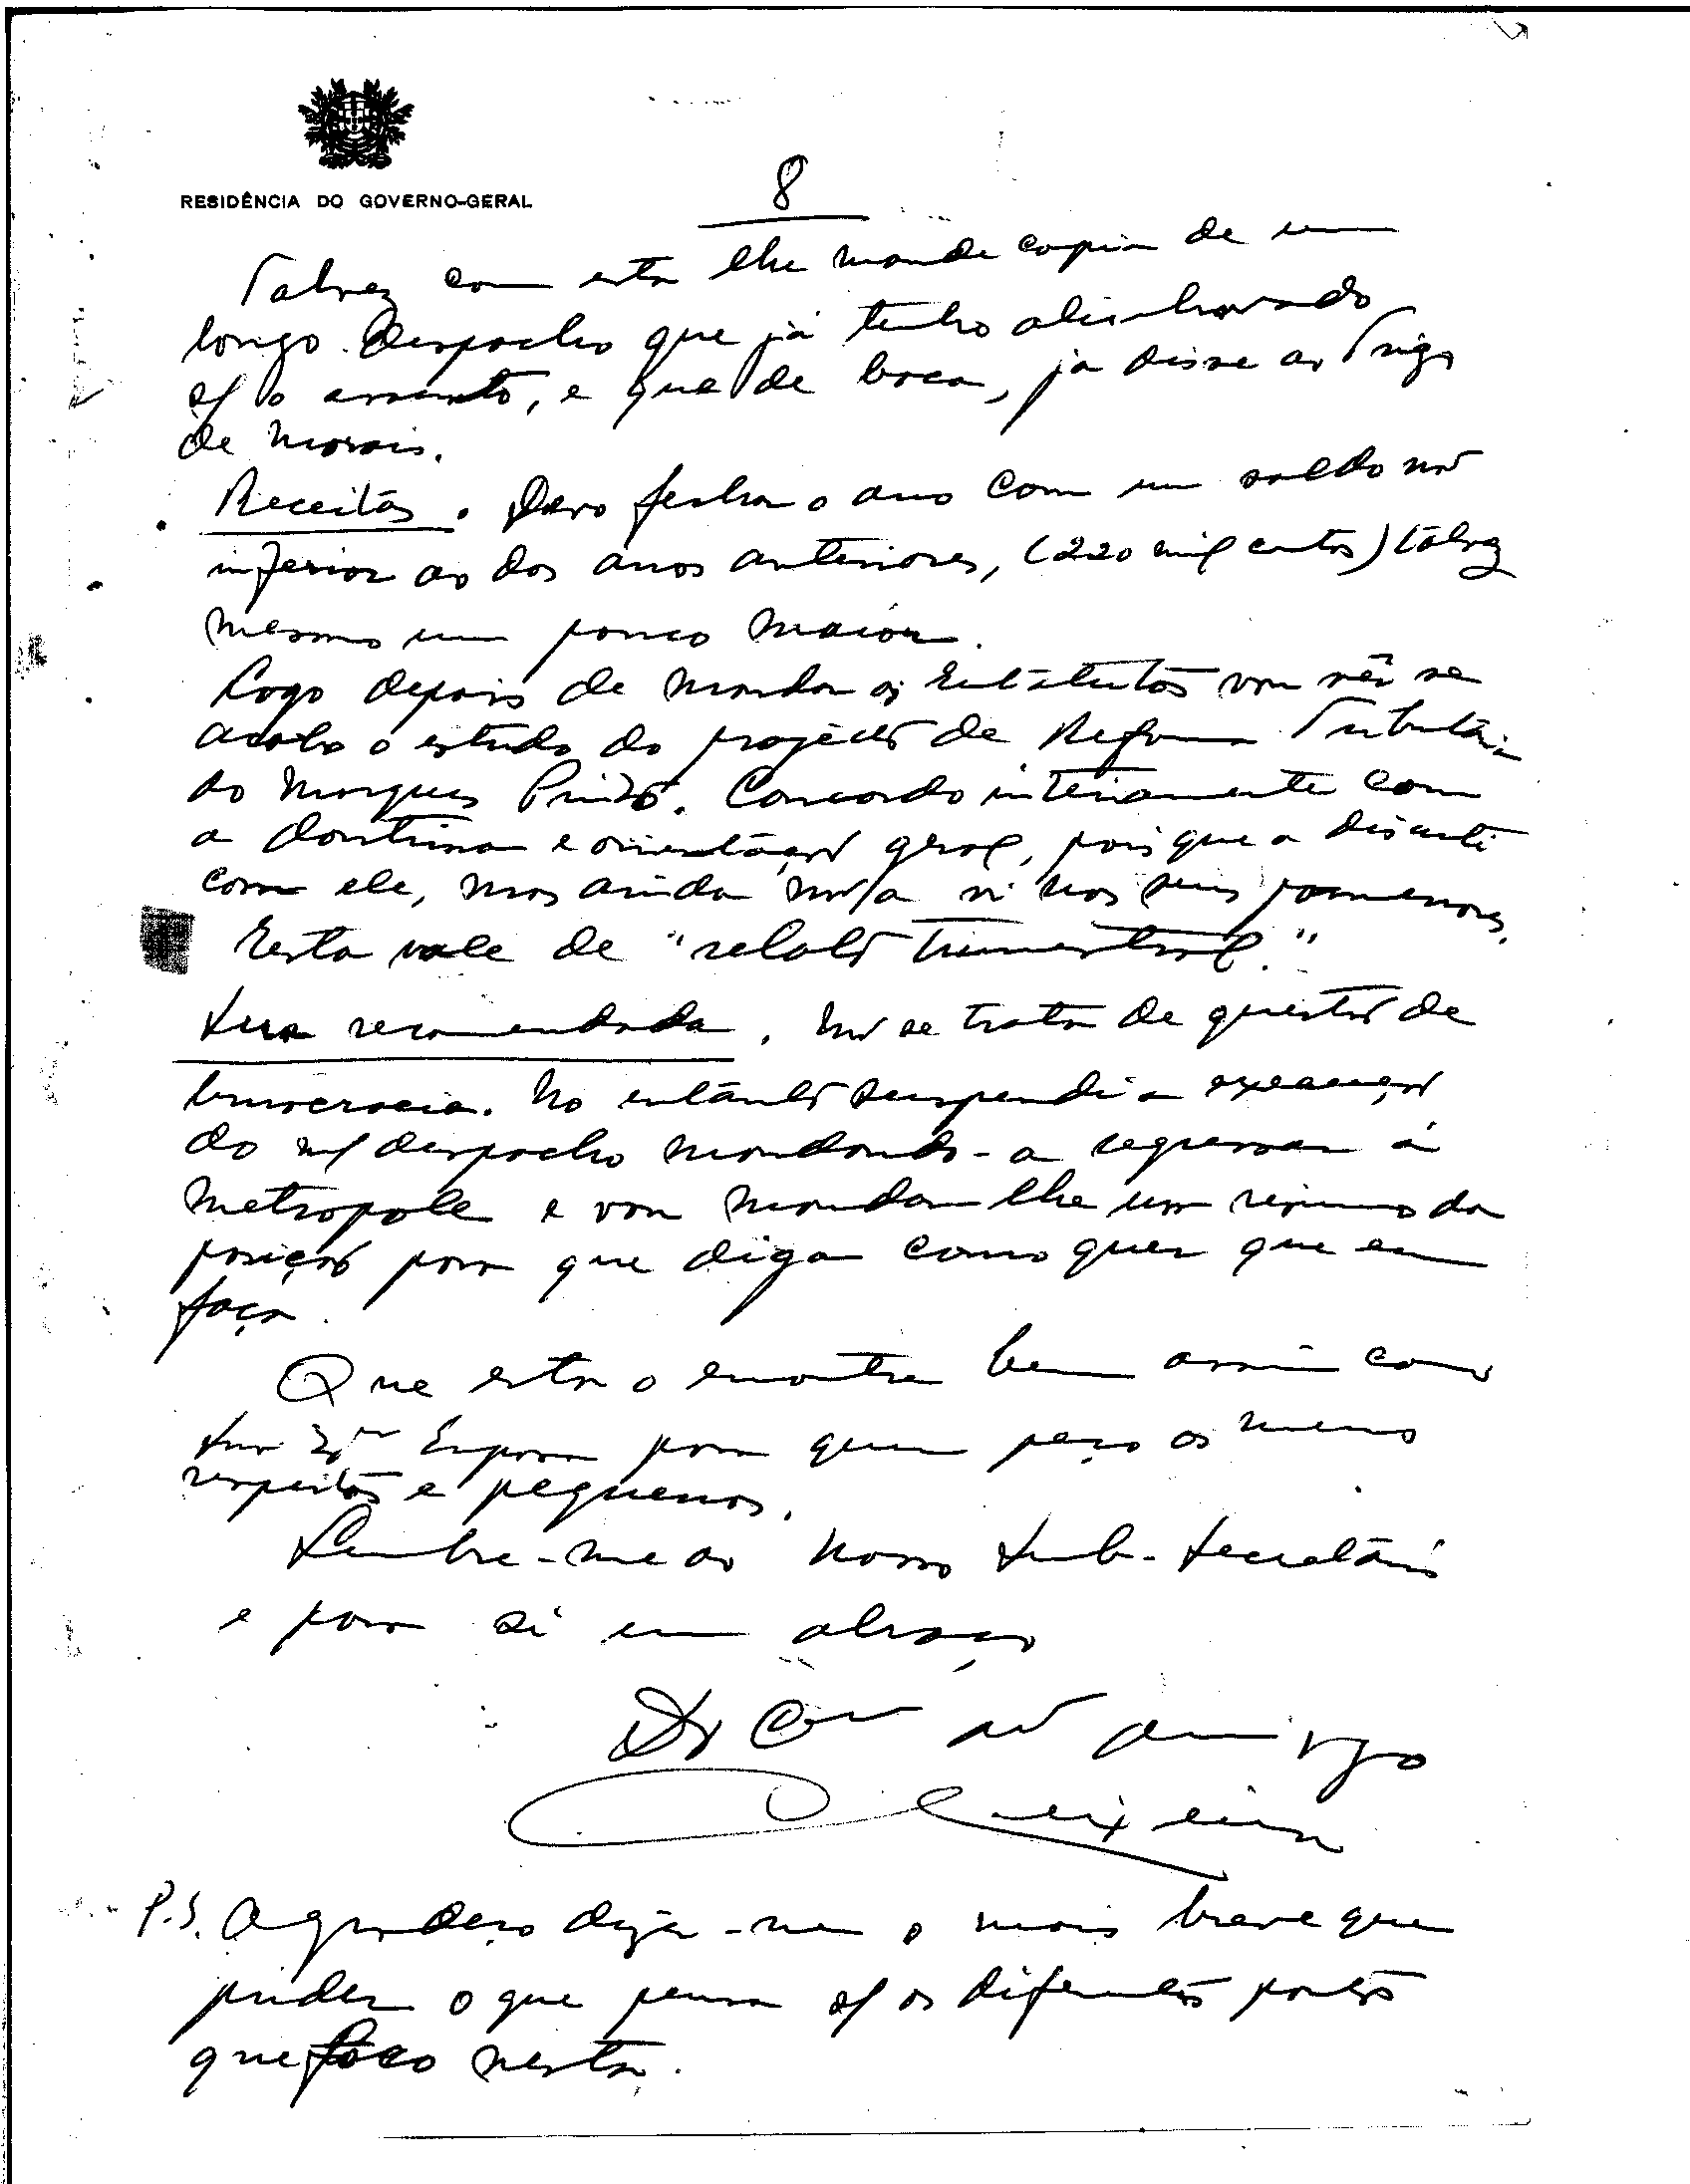 RESIDÊNCIA DO GOVERNO-GERAL
8
Talvez com esta lhe mande copia de um
longo despacho que já tenho alinhavado
s/ o assunto, e que de boca, já disse ao Trigo
de Morais.
Receitas. Devo fechar o ano com um saldo não
inferior ao dos anos anteriores, (220 mil contos) talvez
mesmo um pouco maior.
Logo depois de mandar os Estatutos vou vêr se
acabo o estudo do projécto de Reforma Tributária
do Marques Pinto. Concordo inteiramente com
a doutrina e orientação geral, pois que a discuti
com ele, mas ainda não a vi nos seus pormenores.
Esta vale de "relató trimestral."
Sua recomendada. Não se trata de questão de
burocracia. No entânto suspendi a execução
do m/ despacho mandando-a regressar á
Metropole e vou mandar lhe um resumo da
posição para que diga como quer que eu
faça.
Que esta o encontre bem assim como
Sua Exma Esposa para quem peço os meus
respeitos e pequenos.
Lembre-me ao nosso Sub-Secretário
e para si um abraço
Do amigo
Teixeira
P.S. Agradeço diga-me o mais breve que
puder o que pensa s/ os diferentes pontos
que foco nesta.